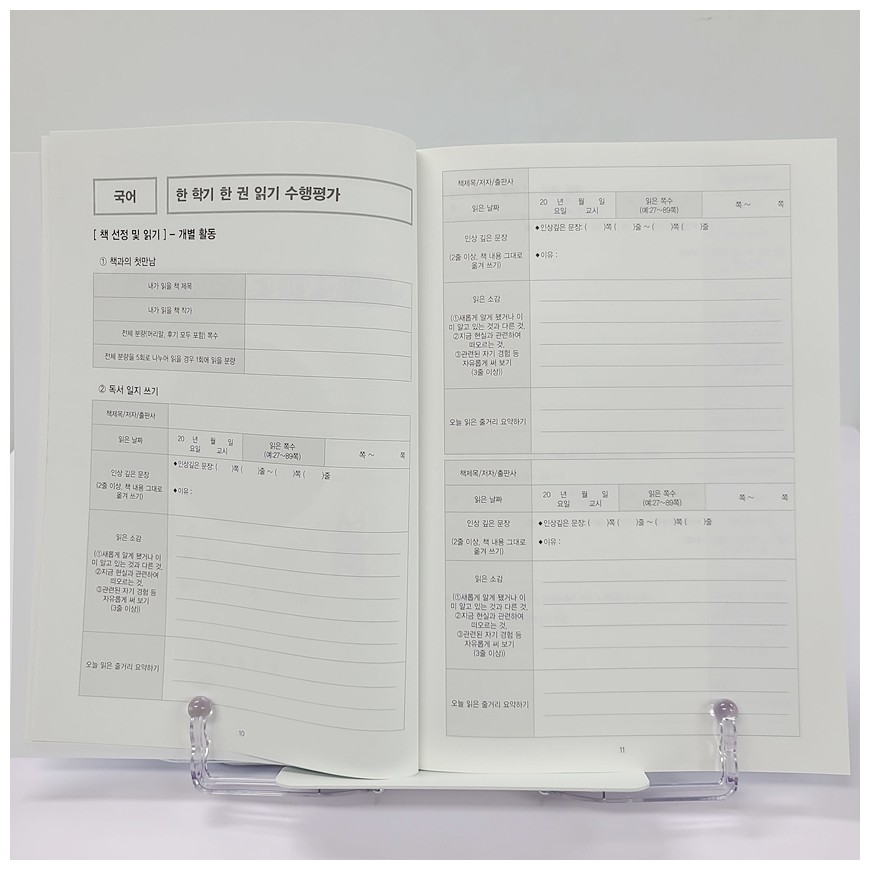 국어
한 학기 한 권 읽기 수행평가
[ 책 선정 및 읽기 ] – 개별 활동
① 책과의 첫만남
내가 읽을 책 제목
내가 읽을 책 작가
전체 분량(머리말, 후기 모두 포함) 쪽수
전체 분량을 5회로 나누어 읽을 경우 1회에 읽을 분량
② 독서 일지 쓰기
책제목/저자/출판사
읽은 날짜
20 년 월 일
요일 교시
읽은 쪽수
(예:27~89쪽)
쪽 ~ 쪽
인상 깊은 문장
(2줄 이상, 책 내용 그대로
옮겨 쓰기)
◆인상깊은 문장: ( )쪽 ( )줄 ~ ( )쪽 ( )줄
◆이유 :
읽은 소감
(①새롭게 알게 됐거나 이
미 알고 있는 것과 다른 것,
②지금 현실과 관련하여
떠오르는 것,
③관련된 자기 경험 등
자유롭게 써 보기
(3줄 이상))
오늘 읽은 줄거리 요약하기
10
책제목/저자/출판사
읽은 날짜
20 년 월 일
요일 교시
읽은 쪽수
(예:27~89쪽)
쪽 ~ 쪽
인상 깊은 문장
(2줄 이상, 책 내용 그대로
옮겨 쓰기)
◆인상깊은 문장: ( )쪽 ( )줄 ~ ( )쪽 ( )줄
◆이유 :
읽은 소감
(①새롭게 알게 됐거나 이
미 알고 있는 것과 다른 것,
②지금 현실과 관련하여
떠오르는 것,
③관련된 자기 경험 등
자유롭게 써 보기
(3줄 이상))
오늘 읽은 줄거리 요약하기
책제목/저자/출판사
읽은 날짜
20 년 월 일
요일 교시
읽은 쪽수
(예:27~89쪽)
쪽 ~ 쪽
인상 깊은 문장
(2줄 이상, 책 내용 그대로
옮겨 쓰기)
◆인상깊은 문장: ( )쪽 ( )줄 ~ ( )쪽 ( )줄
◆이유 :
읽은 소감
(①새롭게 알게 됐거나 이
미 알고 있는 것과 다른 것,
②지금 현실과 관련하여
떠오르는 것,
③관련된 자기 경험 등
자유롭게 써 보기
(3줄 이상))
오늘 읽은 줄거리 요약하기
11